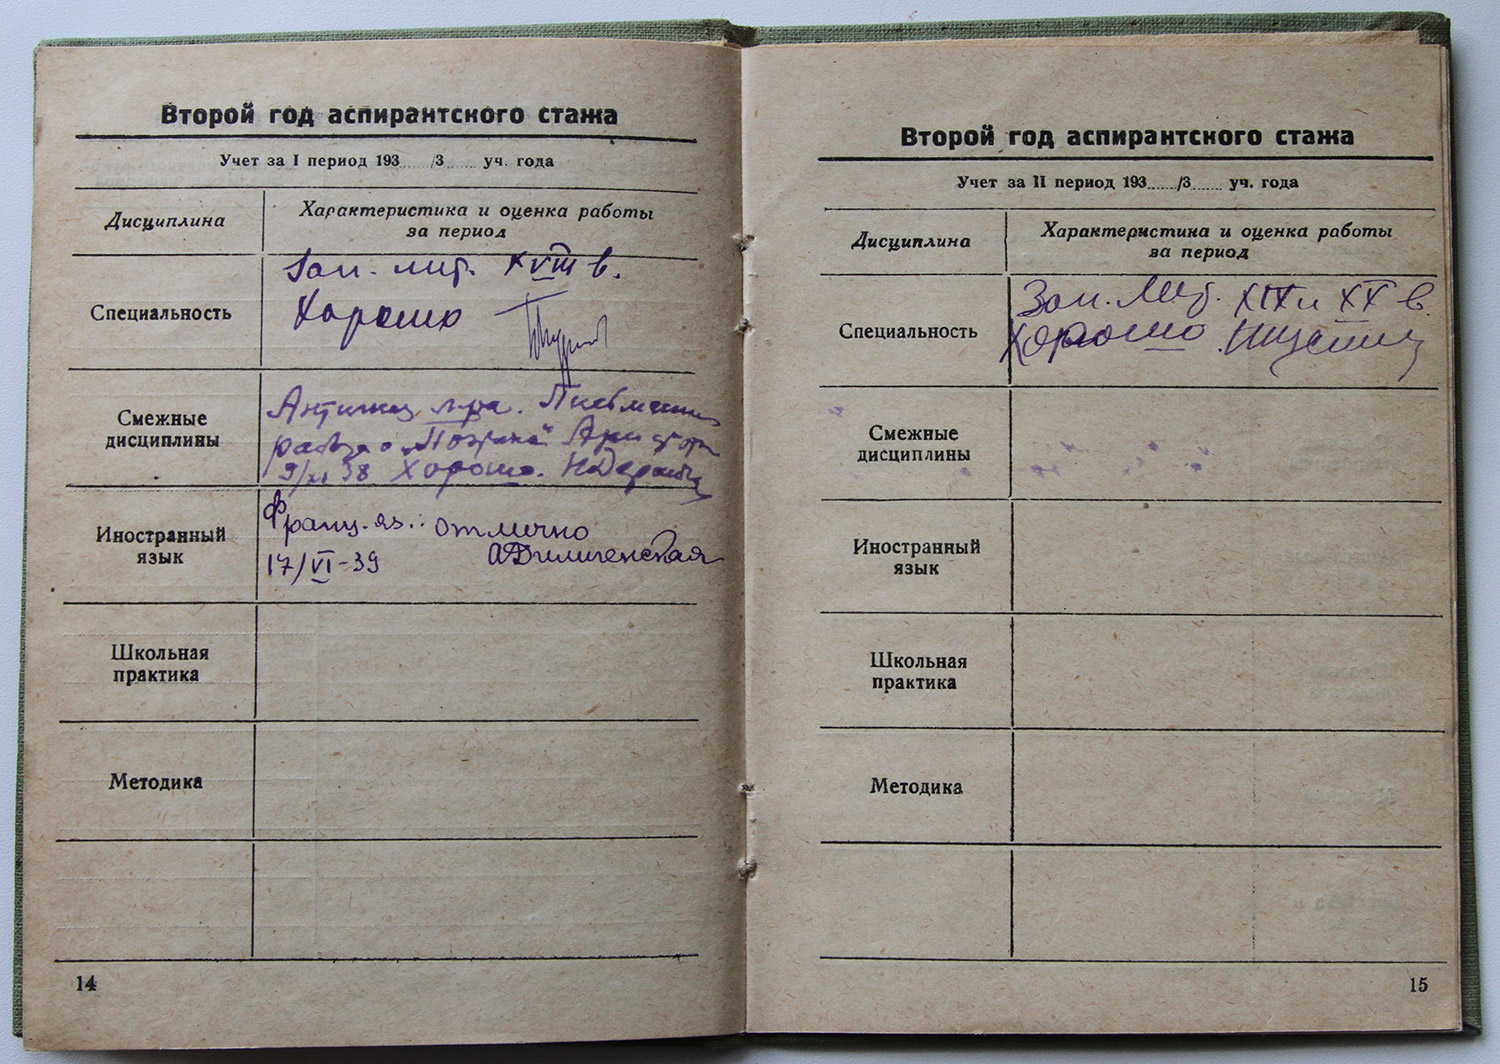 Второй год аспирантского стажа
Учет за I период 193 /3 уч. года
Дисциплина
Характеристика и оценка работы
за период
Специальность
Зап. лит. XVIII в.
Хорошо
Смежные
дисциплины
Античная л-ра. Письменная
работа о „Поэтике“
9/XI 38 Хорошо.
Иностранный
язык
Франц. яз.: отлично
17/VI-39
Школьная
практика
Методика
14
Второй год аспирантского стажа
Учет за II период 193 /3 уч. года
Дисциплина
Характеристика и оценка работы
за период
Специальность
Зап. Лит. XIX и XX в.
Хорошо
Смежные
дисциплины
Иностранный
язык
Школьная
практика
Методика
15